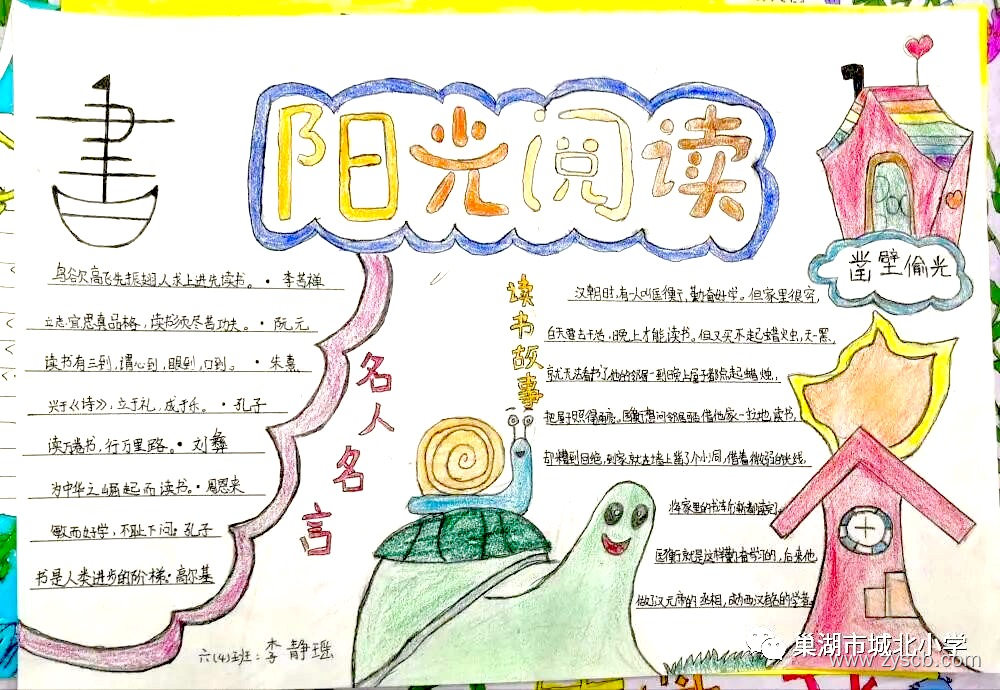 阳光阅读
書
凿壁偷光
鸟欲高飞先振翅,人求上进先读书。·李苦禅
立志宜思真品格,读书须尽苦功夫。·阮元
读书有三到,谓心到,眼到,口到。·朱熹
兴于《诗》,立于礼,成于乐。·孔子
读万卷书,行万里路。·刘彝
为中华之崛起而读书。·周恩来
敏而好学,不耻下问。孔子
书是人类进步的阶梯·高尔基
名人名言
读书故事
汉朝时,有人叫匡衡,勤奋好学。但家里很穷,
白天要去干活,晚上才能读书。但又买不起蜡烛,天一黑,
就无法看书了,他的邻居一到晚上屋子都点起蜡烛,
把屋子照得通亮。匡衡想问邻居
借他家一
地读书,
却遭到
拒绝,到家就在墙上凿了个小洞,借着微弱的光线,
将家里的书
都读完。
匡衡就是这样勤奋学习的,后来他,
做了汉元帝的丞相,成为西汉有名的学者。
六(4)班:李静瑶
巢湖市城北小学
www.zyscb.com